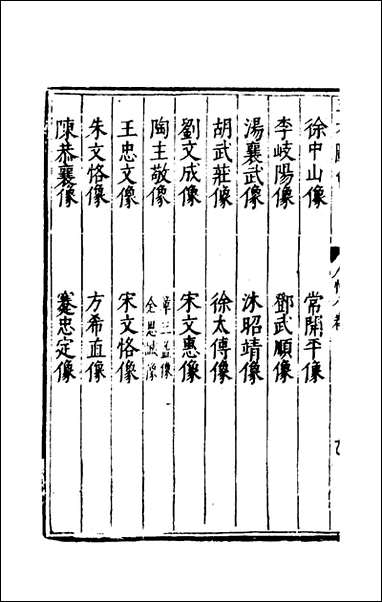 徐中山像 常開平像
李岐陽像 鄧武順像
湯襄武像 沐昭靖像
胡武莊像 徐太傅像
劉文成像 宋文惠像
陶主敬像 章三益像 全思誠像
王忠文像 宋文恪像
朱文恪像 方希直像
陳恭襄像 蹇忠定像